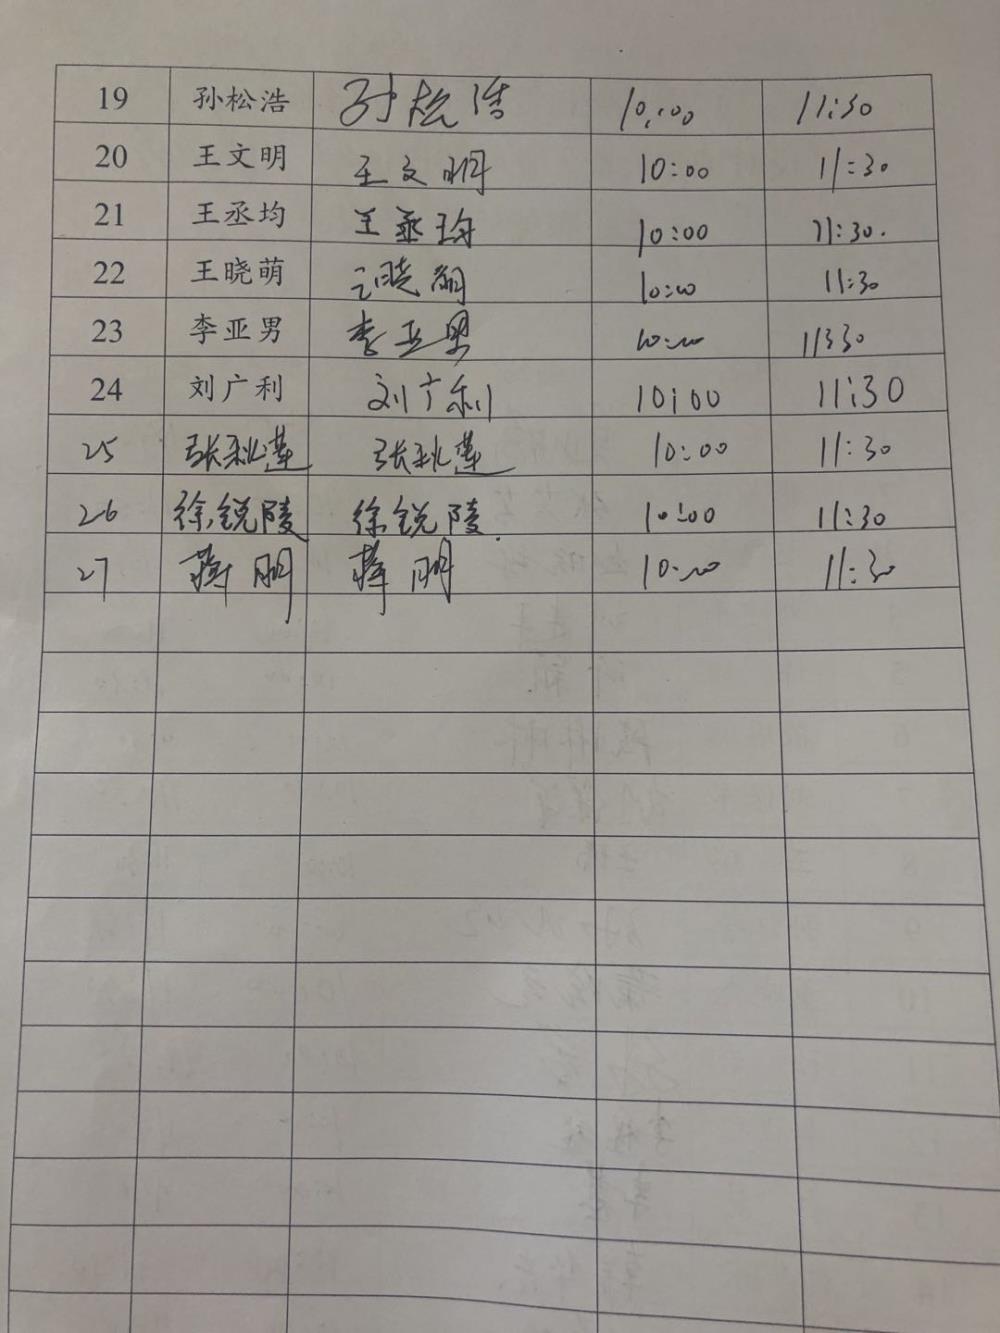 19 孙松浩 孙松浩 10:00 11:30
20 王文明 王文明 10:00 11:30
21 王丞均 王丞均 10:00 11:30.
22 王晓萌 王晓萌 10:00 11:30
23 李亚男 李亚男 10:00 11:30
24 刘广利 刘广利 10:00 11:30
25 张秋莲 张秋莲 10:00 11:30
26 徐锐陵 徐锐陵. 10:00 11:30
27 蒋朋 蒋朋 10:00 11:30